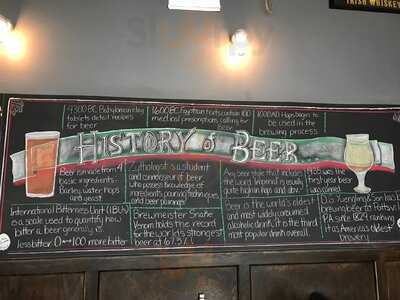 IRISH WHISKEY
4300 BC Babylonian clay
tablets detail recipes
for beer
1600 BC Egyptian texts contain 100
medical prescriptions calling for
Beer
1000 AD Hops begin to
be used in the
brewing process
HISTORY O' BEER
Beer is made from 4
basic ingredients
Barley, water, hops
and yeast
Zythologist is a student
and connoisseur of beer
who possess knowledge of
ingredients, pouring techniques
and beer pairings
Any beer style that includes
the word Imperial is usually
quite high in hops and abv
1935 was the
first year beer
was canned
International Bitterness Unit (IBU)
is a scale used to quantify how
bitter a beer generally is.
less bitter 0 100 more bitter
Brewmeister Snake
Venom holds the record
for the worlds strongest
beer at 67.5%
Beer is the world's oldest
and most widely consumed
alcoholic drink, it is the third
most popular drink overall
D.G. Yuengling and Son
brewing beer Pottsville
PA since 1829 ranking
it as America's Oldest
brewery